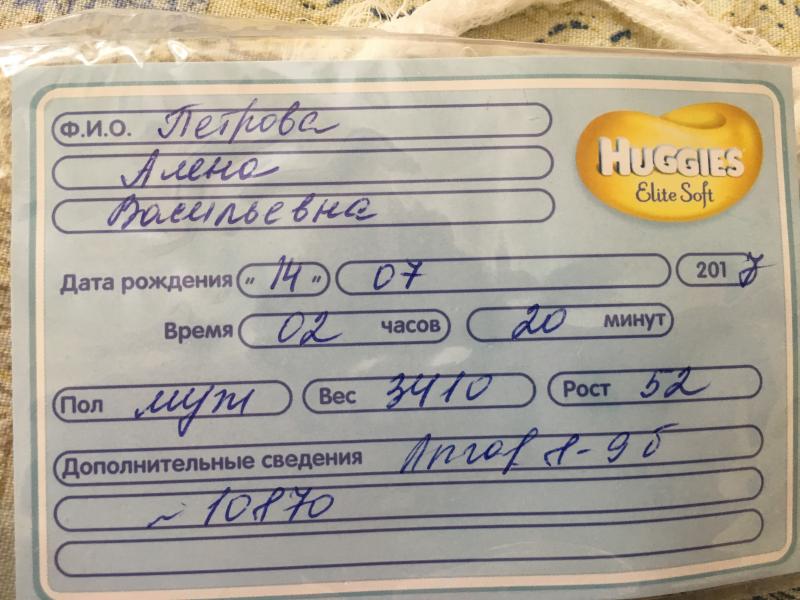 Ф.И.О. Петрова
Алена
Васильевна
HUGGIES
Elite Soft
Дата рождения „ 14 „ 07 2017
Время 02 часов 20 минут
Пол муж Вес 3410 Рост 52
Дополнительные сведения Апгар 8-9 б
~ 10870